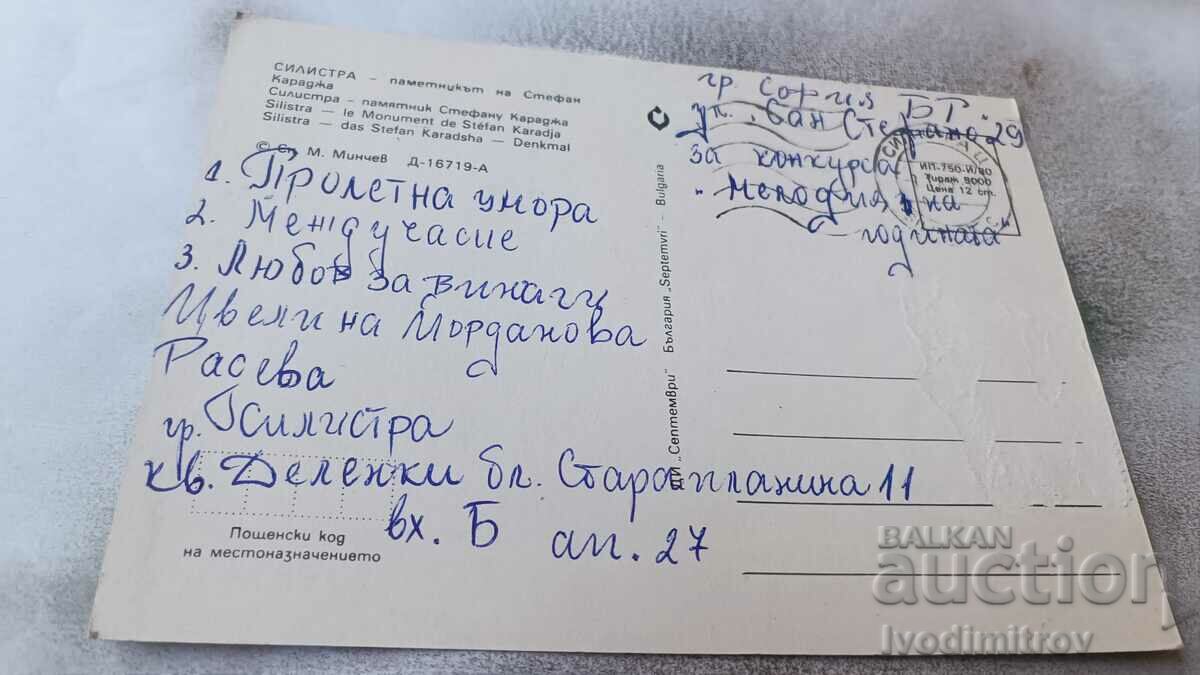 СИЛИСТРА – паметникът на Стефан
Караджа
Силистра – памятник Стефану Караджа
Silistra – le Monument de Stéfan Karadja
Silistra – das Stefan Karadsha – Denkmal
© Сн. М. Минчев Д-16719-А
1. Пролетна умора
2. Междучасие
3. Любов завинаги
Цвелина Йорданова
Расева
гр. Силистра
кв. Деленки бл. Стара планина 11
вх. Б ап. 27
Пощенски код
на местоназначението
ДИ „Септември" България „Septemvri" – Bulgaria
гр. София БТ
ул. „Сан Стефано 29
за конкурса
„Мелодия на
годината"
ИП-750-И/80
Тираж 5000
Цена 12 ст.
BALKAN
auction
Ivodimitrov